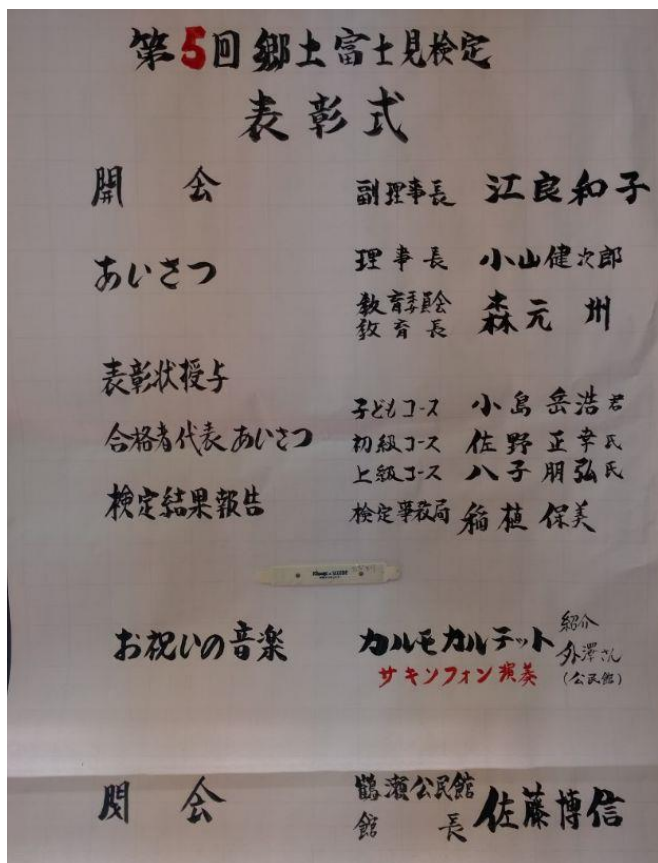 第5回郷土富士見検定
表彰式
開会 副理事長 江良和子
あいさつ 理事長 小山健次郎
教育委員会
教育長 森元州
表彰状授与
子どもコース 小島岳浩君
合格者代表あいさつ 初級コース 佐野正幸氏
上級コース 八子朋弘氏
検定結果報告 検定事務局 稲植保美
お祝いの音楽 カルモカルテット 紹介
外澤さん
サキソフォン演奏 (公民館)
閉会 鶴瀬公民館
館長 佐藤博信